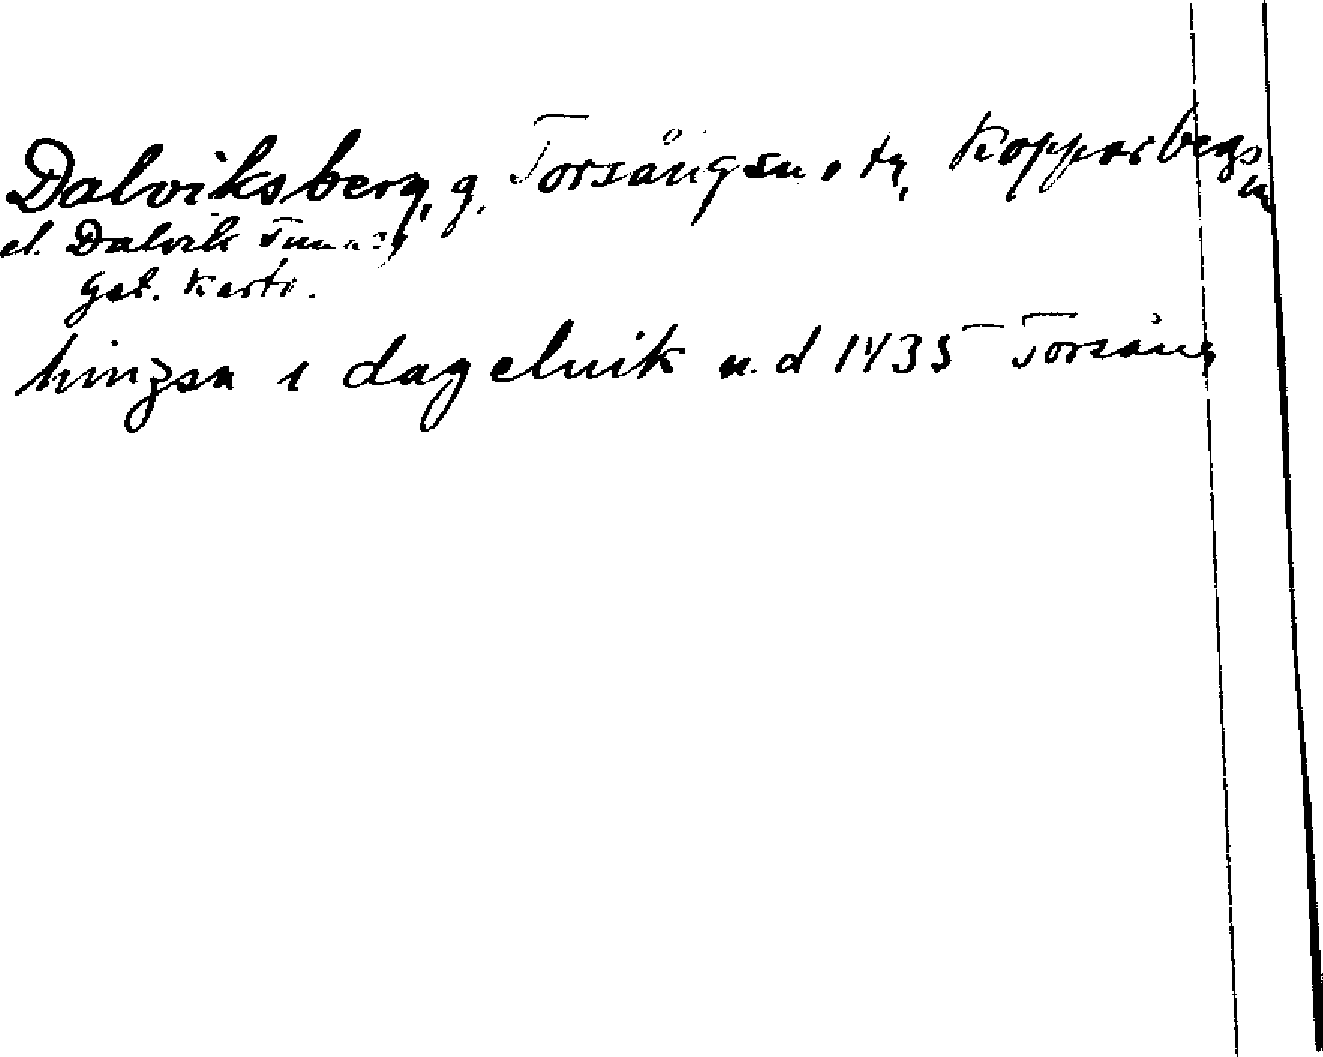 Dalviksberg, g. Torsångs sn o tg, Kopparbergs
ln
el. Dalvik Tuna sn
Gst. karta.
hinzsa i dageluik u.d 1435 Torsång